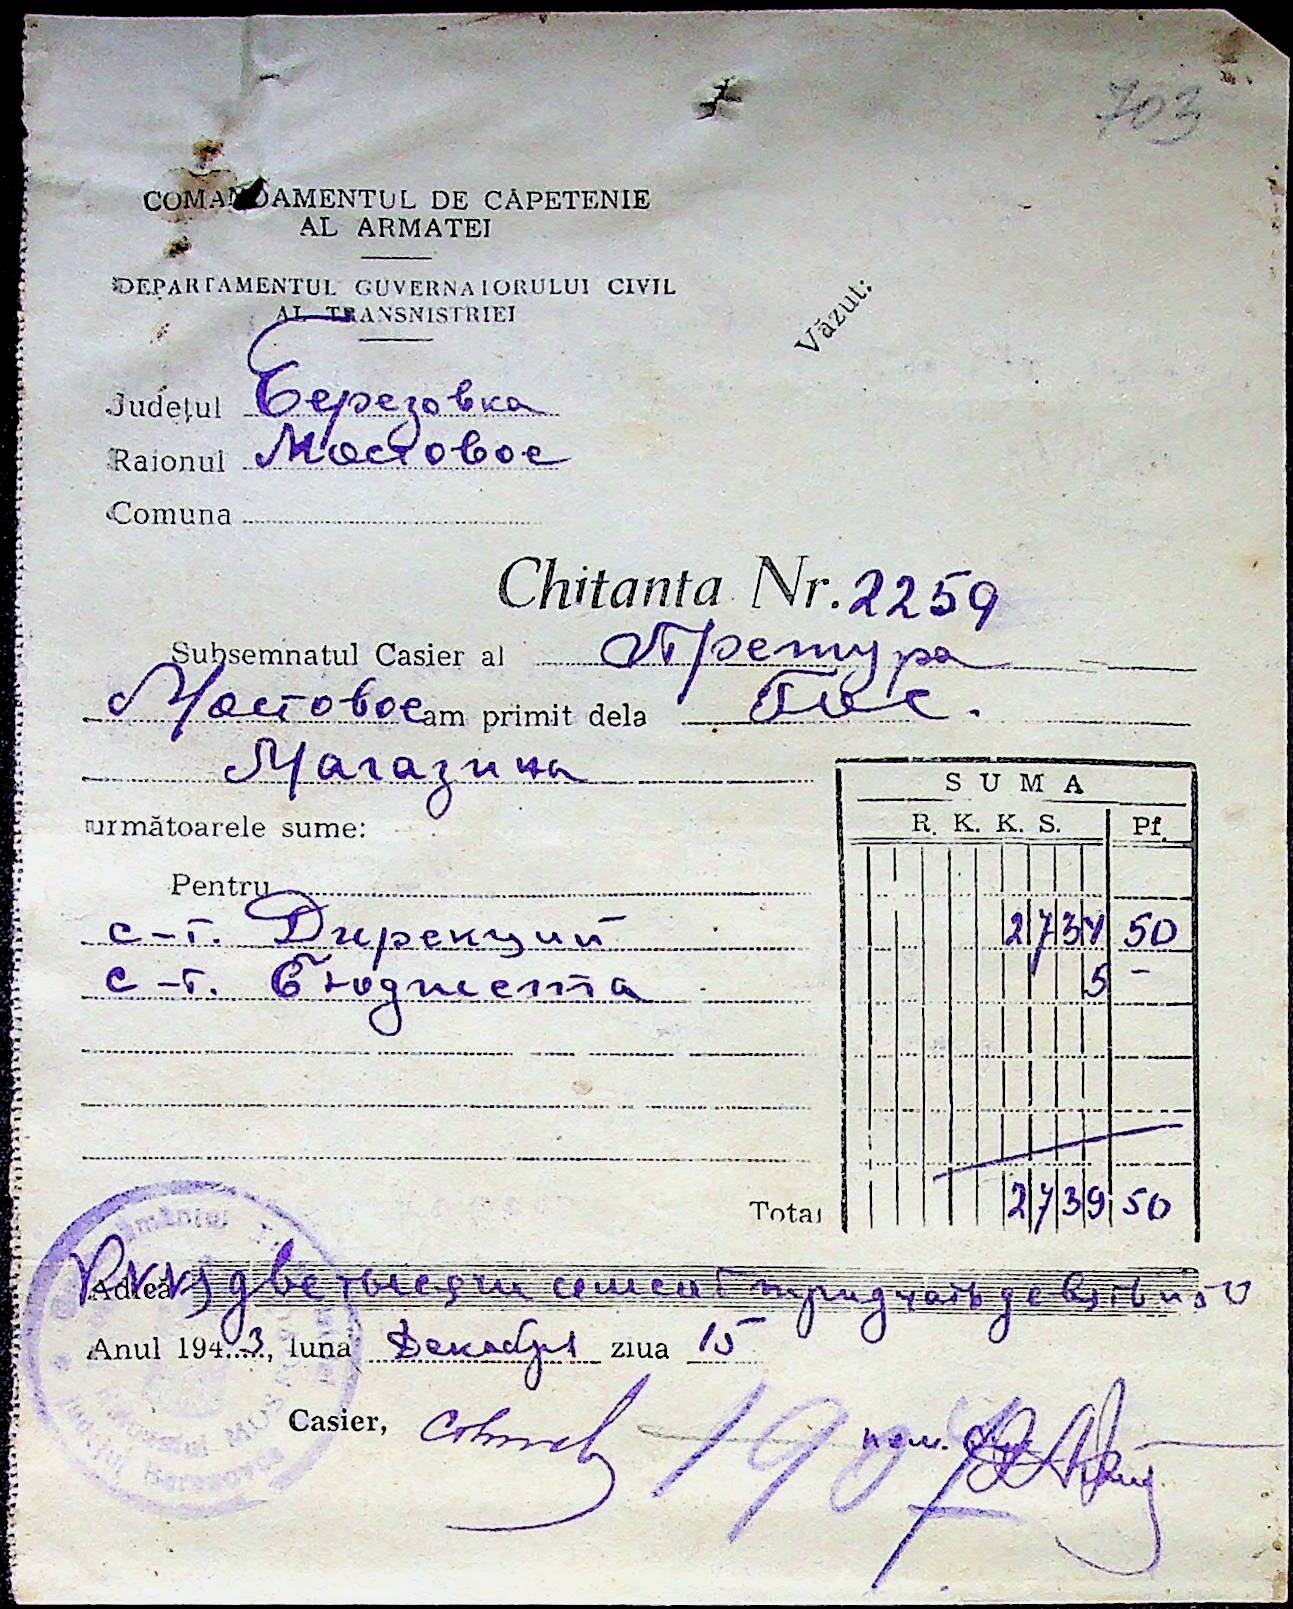 703
COMANDAMENTUL DE CĂPETENIE
AL ARMATEI
DEPARTAMENTUL GUVERNATORULUI CIVIL
AL TRANSNISTRIEI
Văzut:
Județul Березовка
Raionul Мостовое
Comuna
Chitanta Nr. 2259
Subsemnatul Casier al Претура
Мостовое am primit dela Гос.
Магазина
SUMA
următoarele sume:
R. K. K. S. Pf.
Pentru
с-т. Дирекций 2734 50
с-т. Бюджета 5 -
Total 2739 50
Adică две тысячи семсот тридцать девять и 50
Anul 1943, luna Декабря ziua 15
Casier,
пом.